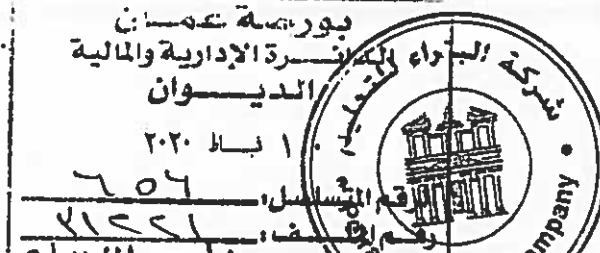 بورصة عمان
الدائرة الإدارية والمالية
الديوان
١ شباط ٢٠٢٠
الرقم المتسلسل: ٦٥٦
رقم الملف: ٣١٢٢١
شركة البتراء للتعليم
mpany